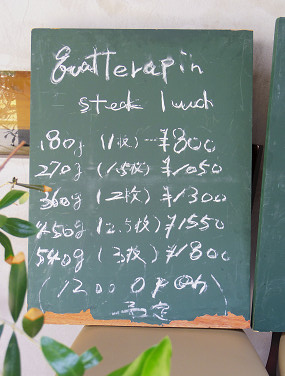 steak lunch
180g (1枚) ¥800
270g (1.5枚) ¥1050
360g (2枚) ¥1300
450g (2.5枚) ¥1550
540g (3枚) ¥1800
(1200 OPEN)
予定